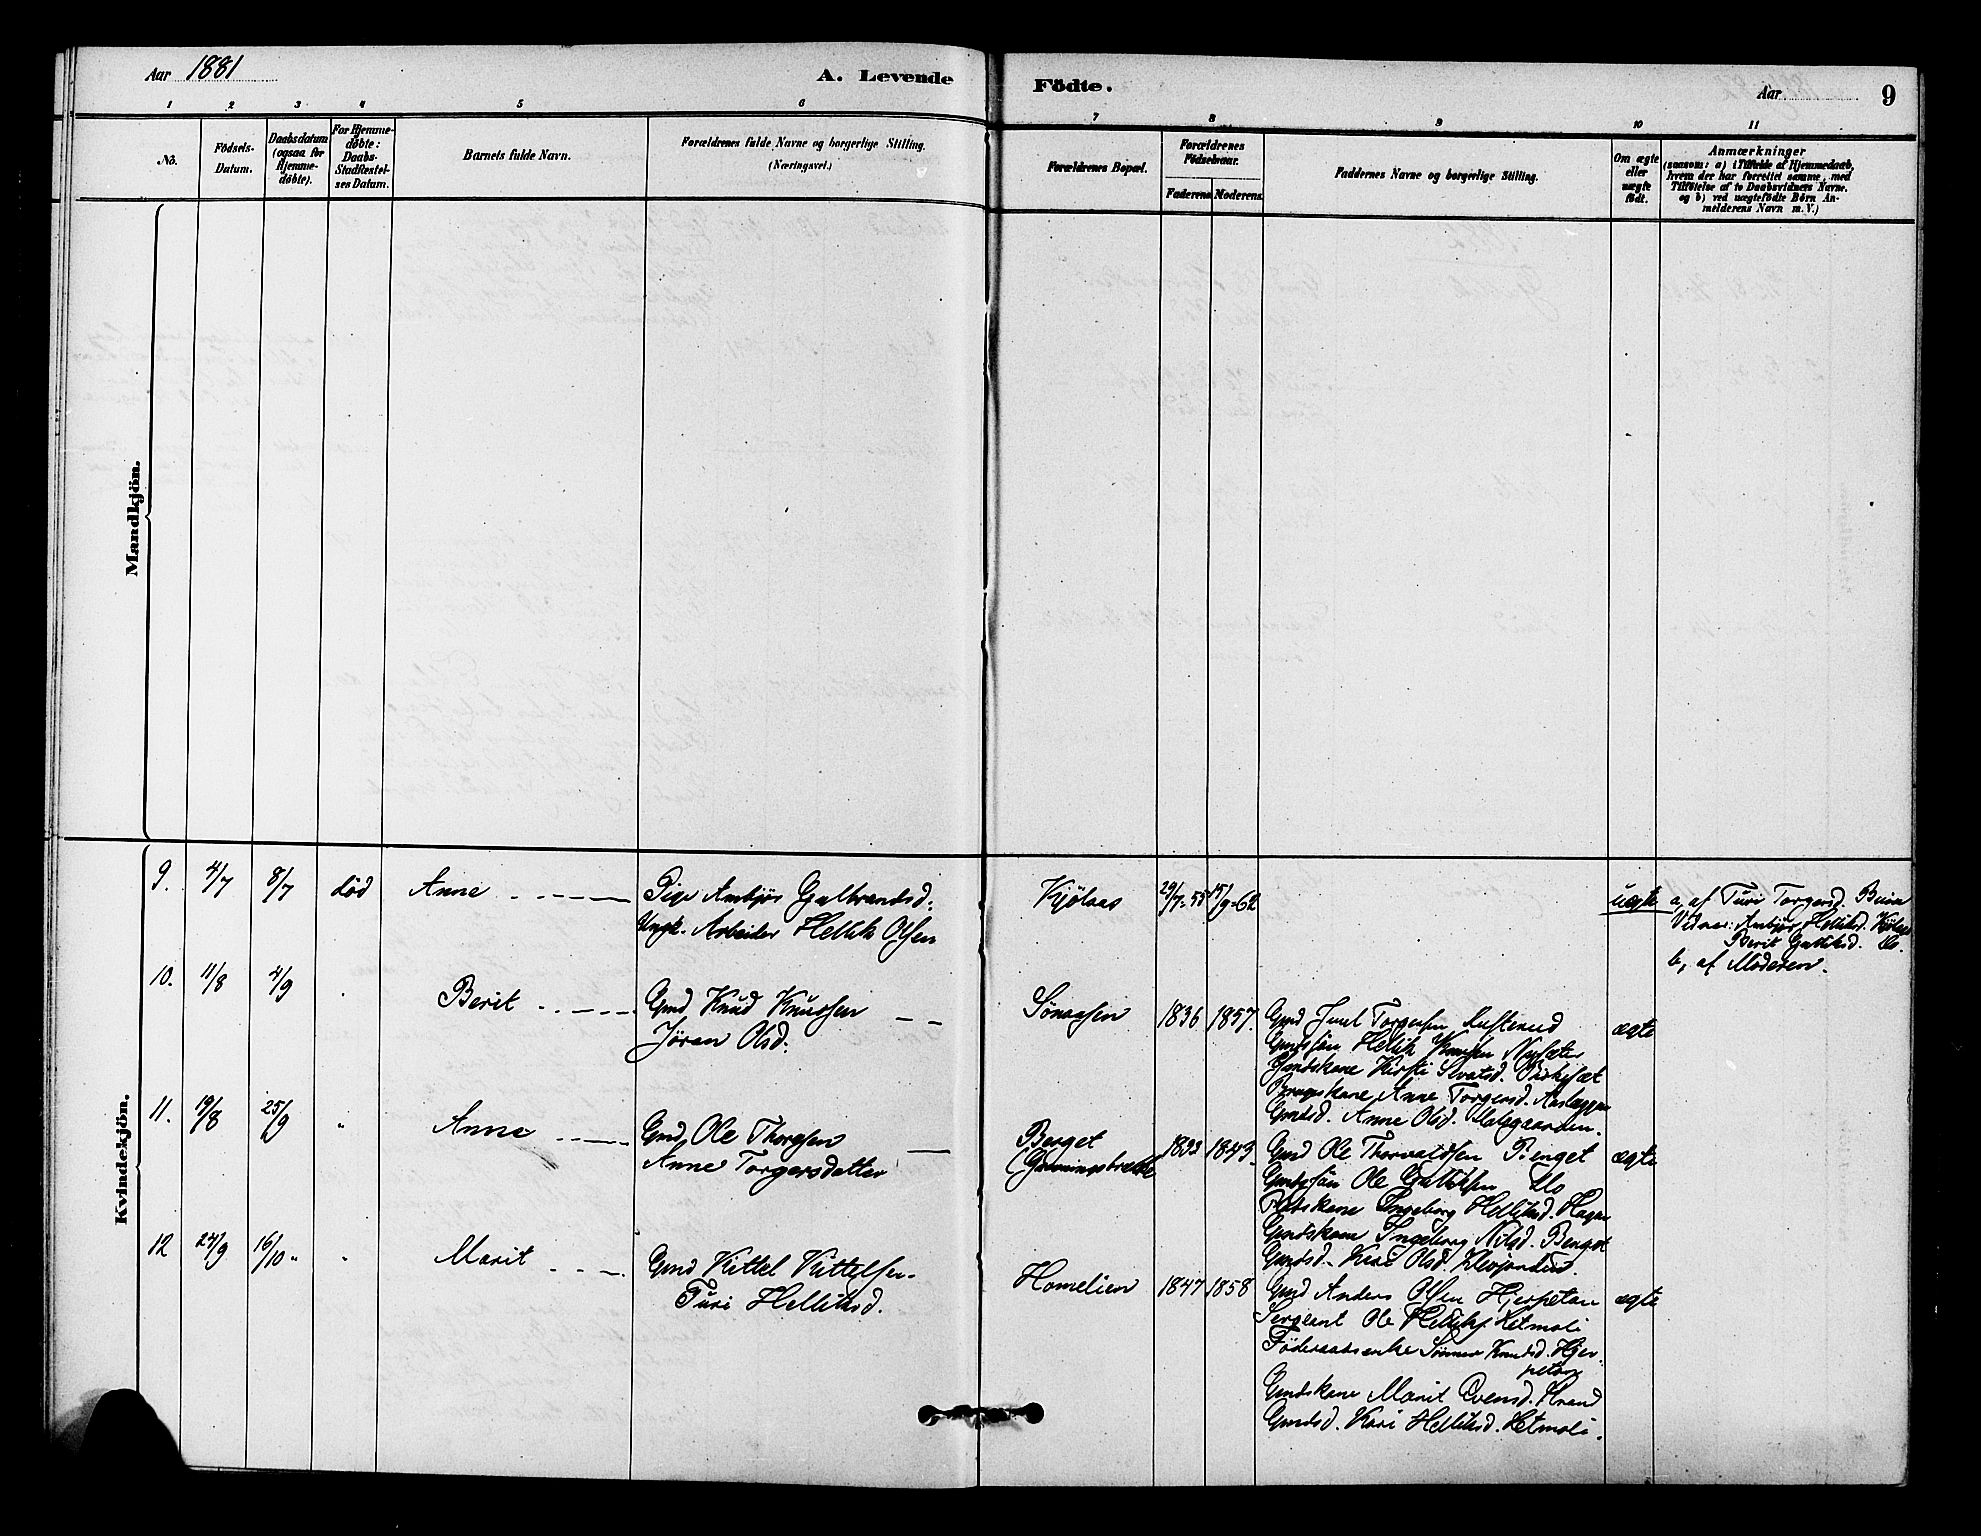 Aar 1881
A. Levende
Födte.
Aar
9
1 2 3 4 5 6
7 8 9 10 11
No.
Födsels-
Datum.
Daabsdatum
(ogsaa for
Hjemme-
döbte).
For Hjemme-
döbte:
Daabs-
Stadfæstel-
ses Datum.
Barnets fulde Navn.
Forældrenes fulde Navne og borgerlige Stilling.
(Næringsvei.)
Forældrenes Bopæl.
Forældrenes
Födselsaar.
Faderens Moderens
Faddernes Navne og borgerlige Stilling.
Om ægte
eller
uægte
födt.
Anmærkninger
(saasom: a) i Tilfælde af Hjemmedaab,
hvem der har forrettet samme, med
Tilföielse af to Daabsvidners Navne.
og b) ved uægtefödte Börn An-
melderens Navn m. V.)
Mandkjön.
Kvindekjön.
9. 4/7 8/7 död Anne
Pige Ambjör Gulbrandsd.
Ungk. Arbeider Hellik Olsen
Kjölaas 29/7-55 15/9-62
uægte
a, af Turi Torgersd.
Vidner: Ambjör Helliksd.
Berit Gulliksd. do.
b, af Moderen.
10. 11/8 4/9 Berit
Gmd Knud Knudsen
Jöran Olsd.
Sönaasen 1836 1857.
Gmd Juul Torgersen
Gmdsön Hellik Knudsen Nysæter
Gmdskone Kirsti Sevatsd.
Brugskone Anne Torgersd.
Gmdsd. Anne Olsd.
ægte
11. 19/8 25/9 " Anne
Gmd Ole Thorsen
Anne Torgersdatter
Berget
1833 1849.
Gmd Ole Thorvaldsen Berget
Gmdssön Ole Gulliksen
Pladskone Ingeborg Helliksd. Hagen
Gmdskone Ingeborg Nilsd. Berget
Gmdsd. Kari Olsd.
ægte
12 24/9 16/10 " " Marit
Gmd Kittel Kittelsen
Turi Helliksd.
Homelien 1847 1858
Gmd Anders Olsen Hjerpetan
Sergeant Ole Helliks. Ketmoli
Föderaadsenke Synnev Knudsd. Hjer-
petan
Gmdskone Marit Evensd.
Gmdsd. Kari Helliksd. Ketmoli.
ægte